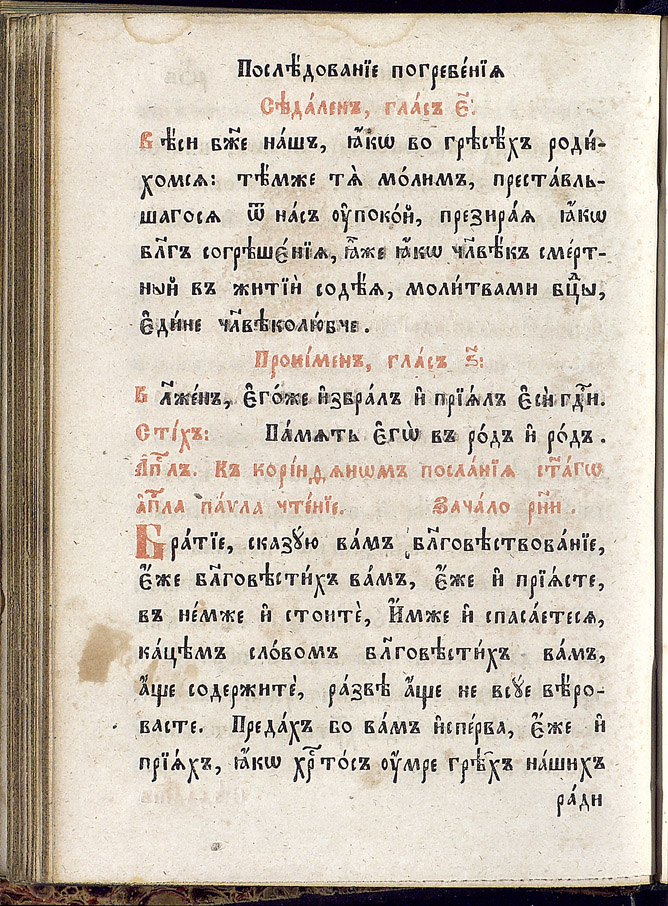 Послѣ́дованїе погребе́нїѧ
Сѣда́ленъ, гла́съ є҃:
Вѣ́си бж҃е на́шъ, ꙗ҆́кѡ во грѣсѣ́хъ роди́-
хомсѧ: тѣ́мже тѧ̀ мо́лимъ, преста́вль-
шагосѧ ѿ на́съ оу҆поко́й, презира́ѧ ꙗ҆́кѡ
бл҃гъ согрѣше́нїѧ, ꙗ҆̀же ꙗ҆́кѡ чл҃вѣ́къ сме́рт-
ный въ житїѝ содѣ́ѧ, моли́твами бцⷣы,
є҆ди́не чл҃вѣколю́бче.
Прокі́менъ, гла́съ ѕ҃:
Бл҃же́нъ, є҆го́же и҆збра́лъ и҆ прїѧ́лъ є҆сѝ гдⷭ҇и.
Сті́хъ: Па́мѧть є҆гѡ̀ въ ро́дъ и҆ ро́дъ.
А҆пⷭ҇лъ. Къ корі́нѳѧнѡмъ посла́нїѧ ст҃а́гѡ
а҆пⷭ҇ла па́ѵла чте́нїе. Зача́ло рн҃и.
Бра́тїе, сказꙋ́ю ва́мъ бл҃говѣствова́нїе,
є҆́же бл҃говѣсти́хъ ва́мъ, є҆́же и҆ прїѧ́сте,
въ не́мже и҆ стоитѐ, И҆́мже и҆ спаса́етесѧ,
ка́цѣмъ сло́вомъ бл҃говѣсти́хъ ва́мъ,
а҆́ще содержитѐ, ра́звѣ а҆́ще не всꙋ́е вѣ́ро-
васте. Преда́хъ бо ва́мъ и҆спе́рва, є҆́же и҆
прїѧ́хъ, ꙗ҆́кѡ хрⷭ҇то́съ оу҆́мре грѣ̑хъ на́шихъ
ра́ди